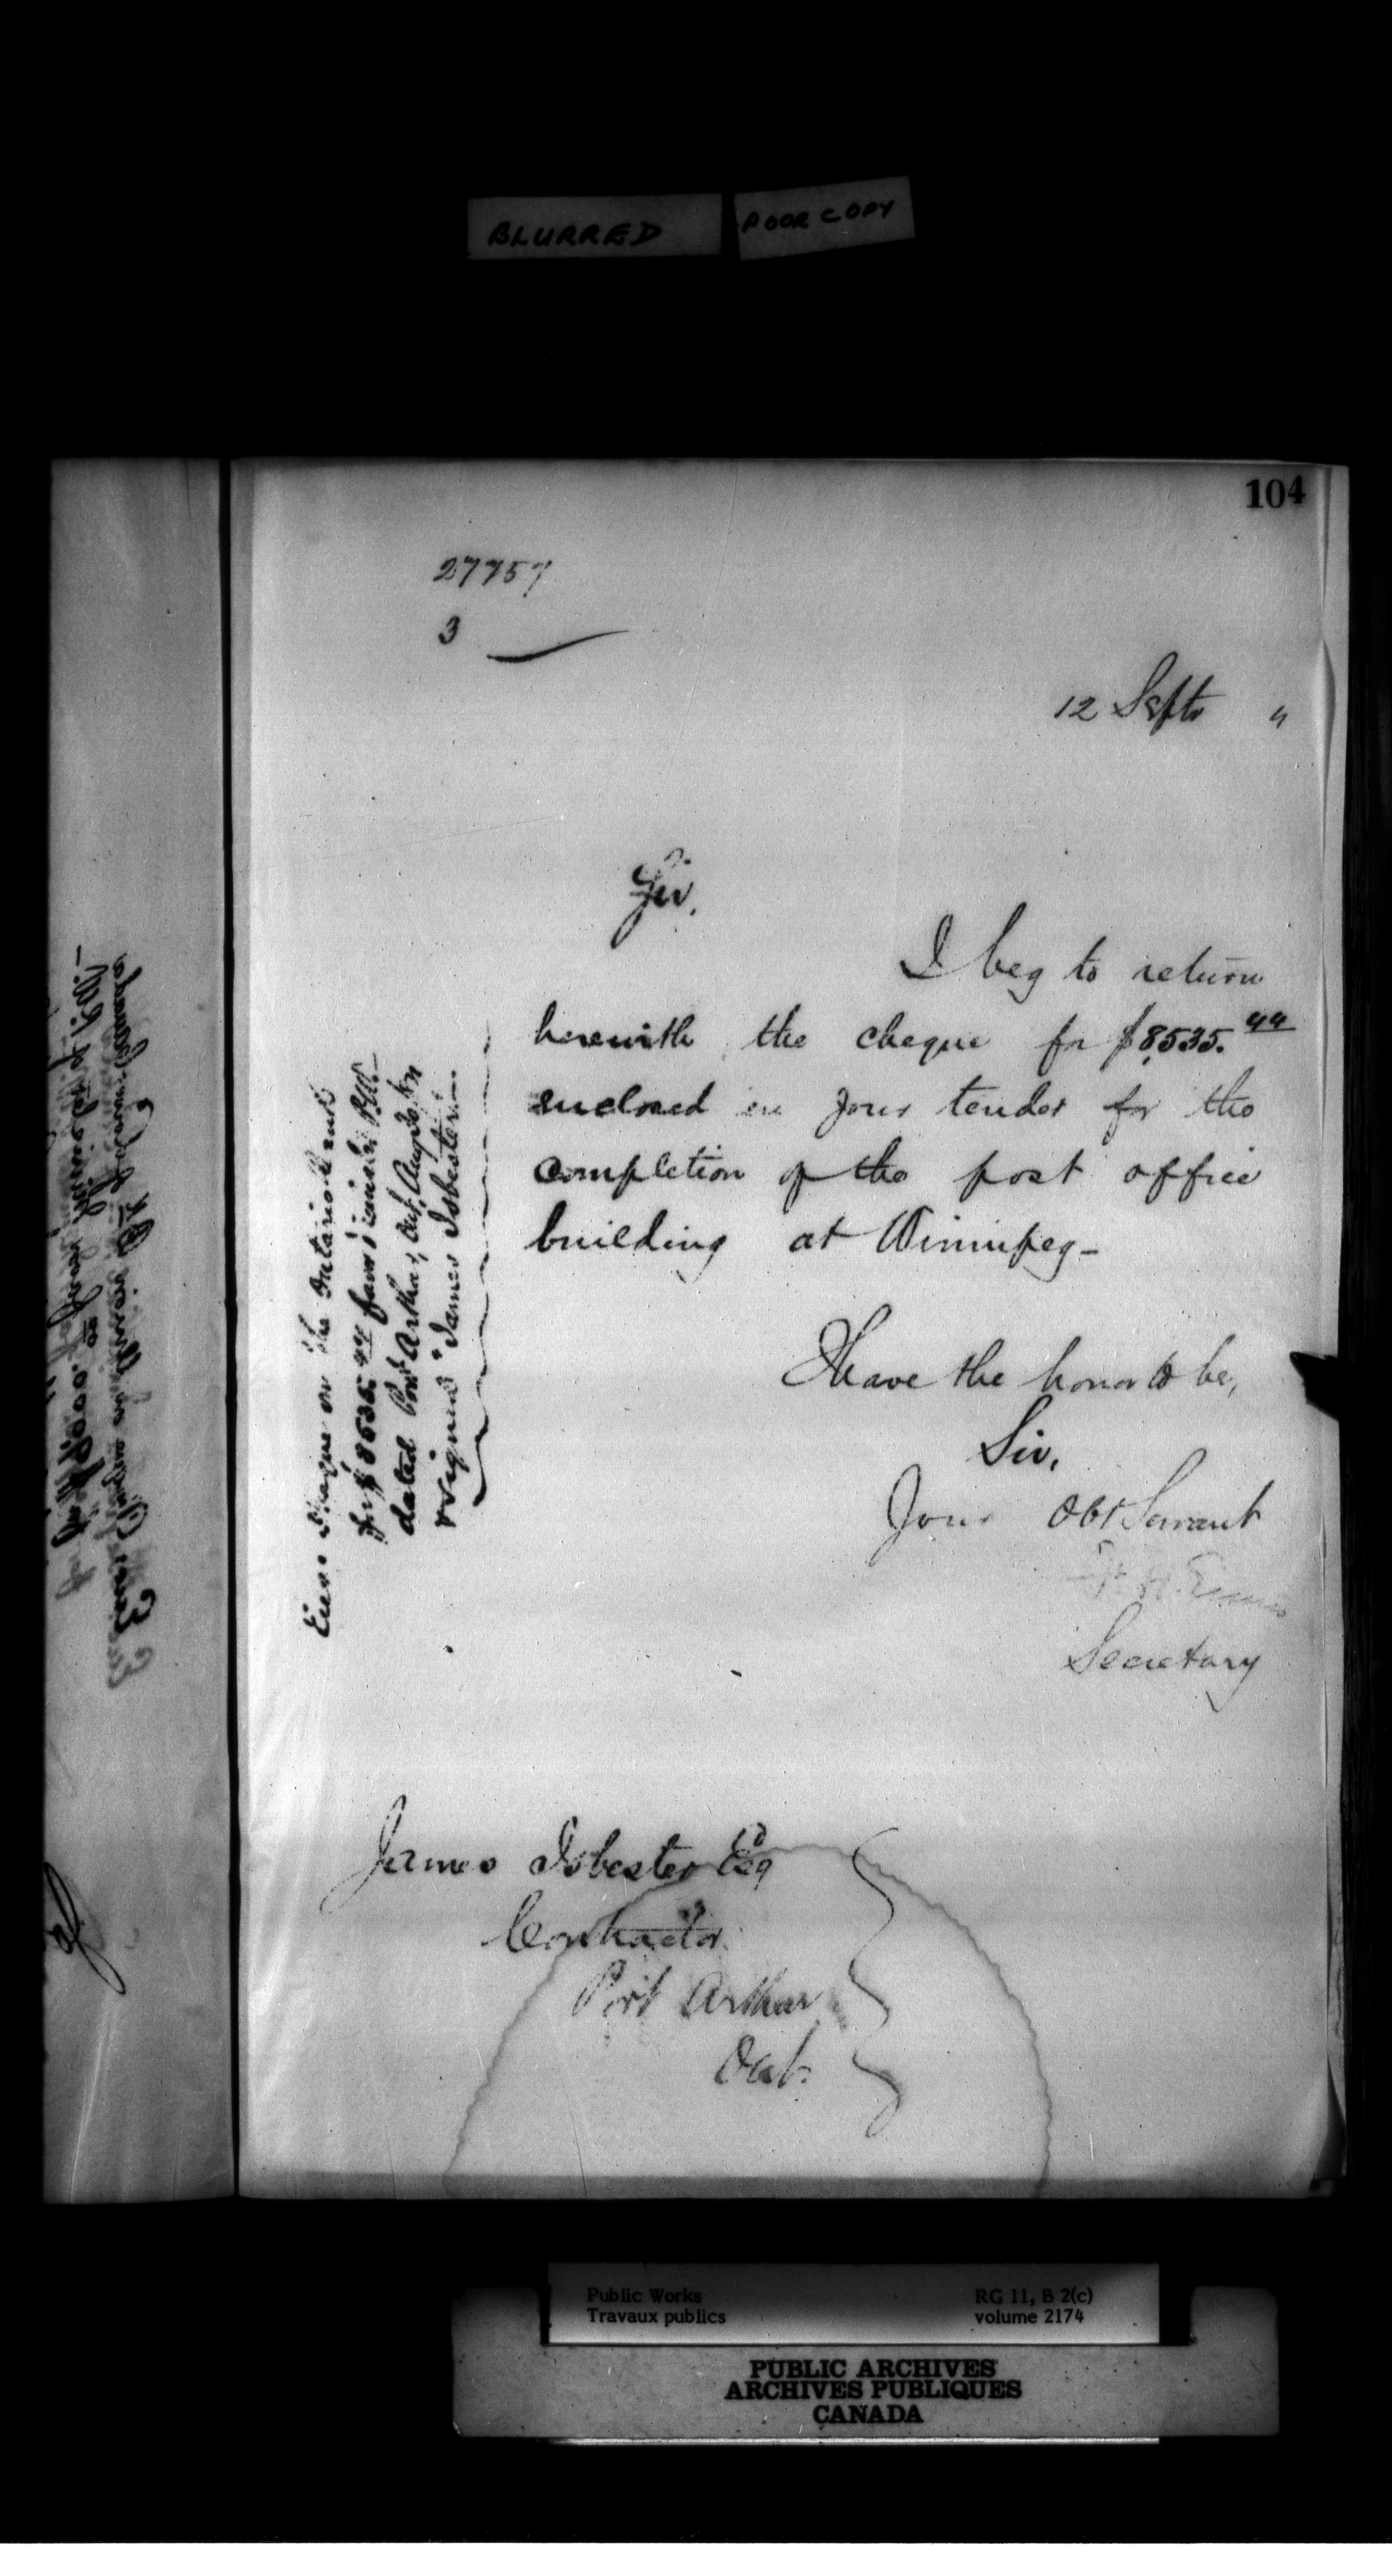 BLURRED
POOR COPY
104
27757
3
12 Septr "
Sir,
I beg to return
herewith the cheque for $8,535.44
enclosed in your tender for the
completion of the post office
building at Winnipeg—
I have the honor to be,
Sir,
Your Obt Servant
Secretary
cheque on the Ontario Bank
for $8535.44 favor Minister P.W.—
dated Port Arthur, Ont. Aug
& signed "James Isbester".
James Isbester Esq
Contractor
Port Arthur
Ont.
Public Works
Travaux publics
RG 11, B 2(c)
volume 2174
PUBLIC ARCHIVES
ARCHIVES PUBLIQUES
CANADA